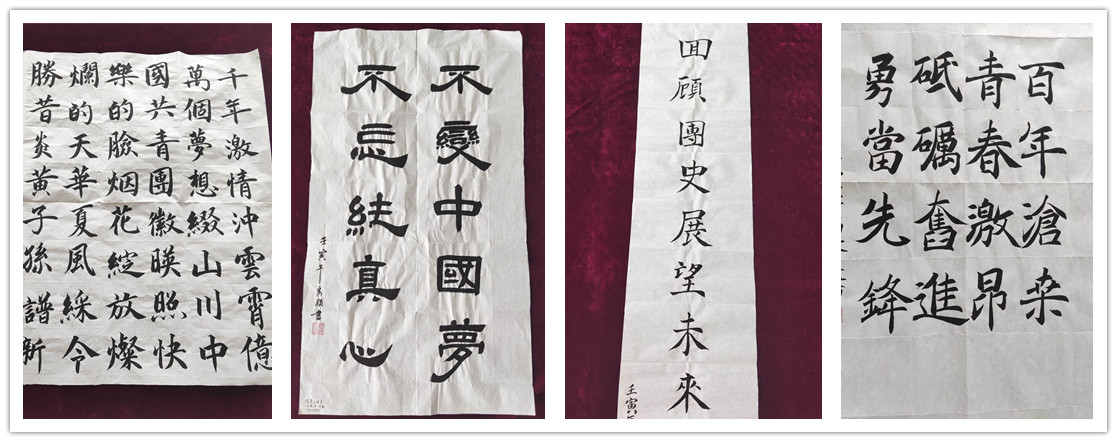 千年激情沖雲霄億
萬個夢想綴山川中
國共青團徽暎照快
樂的臉烟花綻放燦
爛的天華夏風綵今
勝昔炎黃子孫譜新
不變中國夢
不忘結真心
壬寅年 書
囬顧團史展望未來
壬寅
百年滄桒
青春激昂
砥礪奮進
勇當先鋒